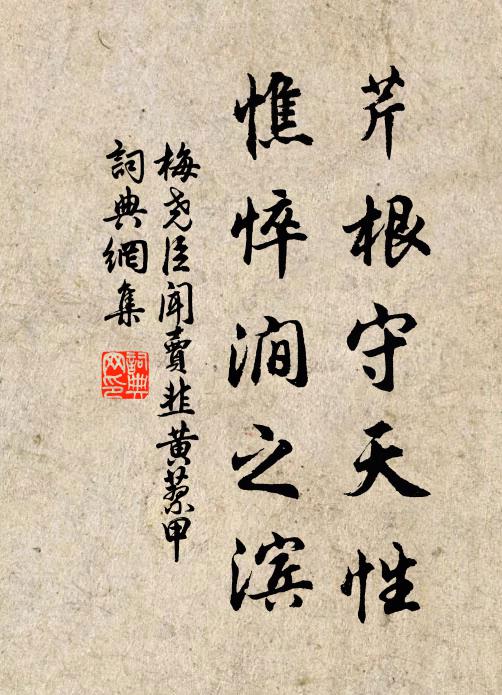 芹根守天性
憔悴澗之滨
梅尧臣闻賣韭黄蓼甲
詞典網集
詞典
网印